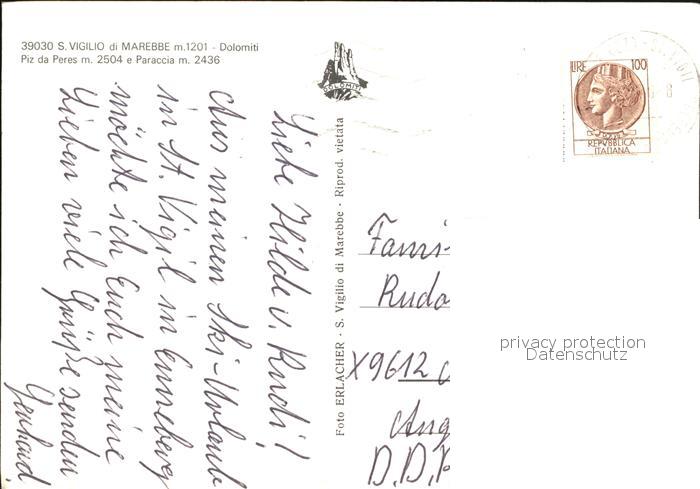 39030 S. VIGILIO di MAREBBE m.1201 - Dolomiti
Piz da Peres m. 2504 e Paraccia m. 2436
DOLOMITI
Liebe Hilde u. Rudi!
Aus meinen Ski-Urlaub
in St. Vigil in Enneberg
möchte ich Euch meine
Lieben viele Grüße senden
Gerhard.
Foto ERLACHER - S. Vigilio di Marebbe - Riprod. vietata
LIRE 100
REPVBBLICA
ITALIANA
Fami-
Rudo
X9612
Ang
D.D.R
privacy protection
Datenschutz